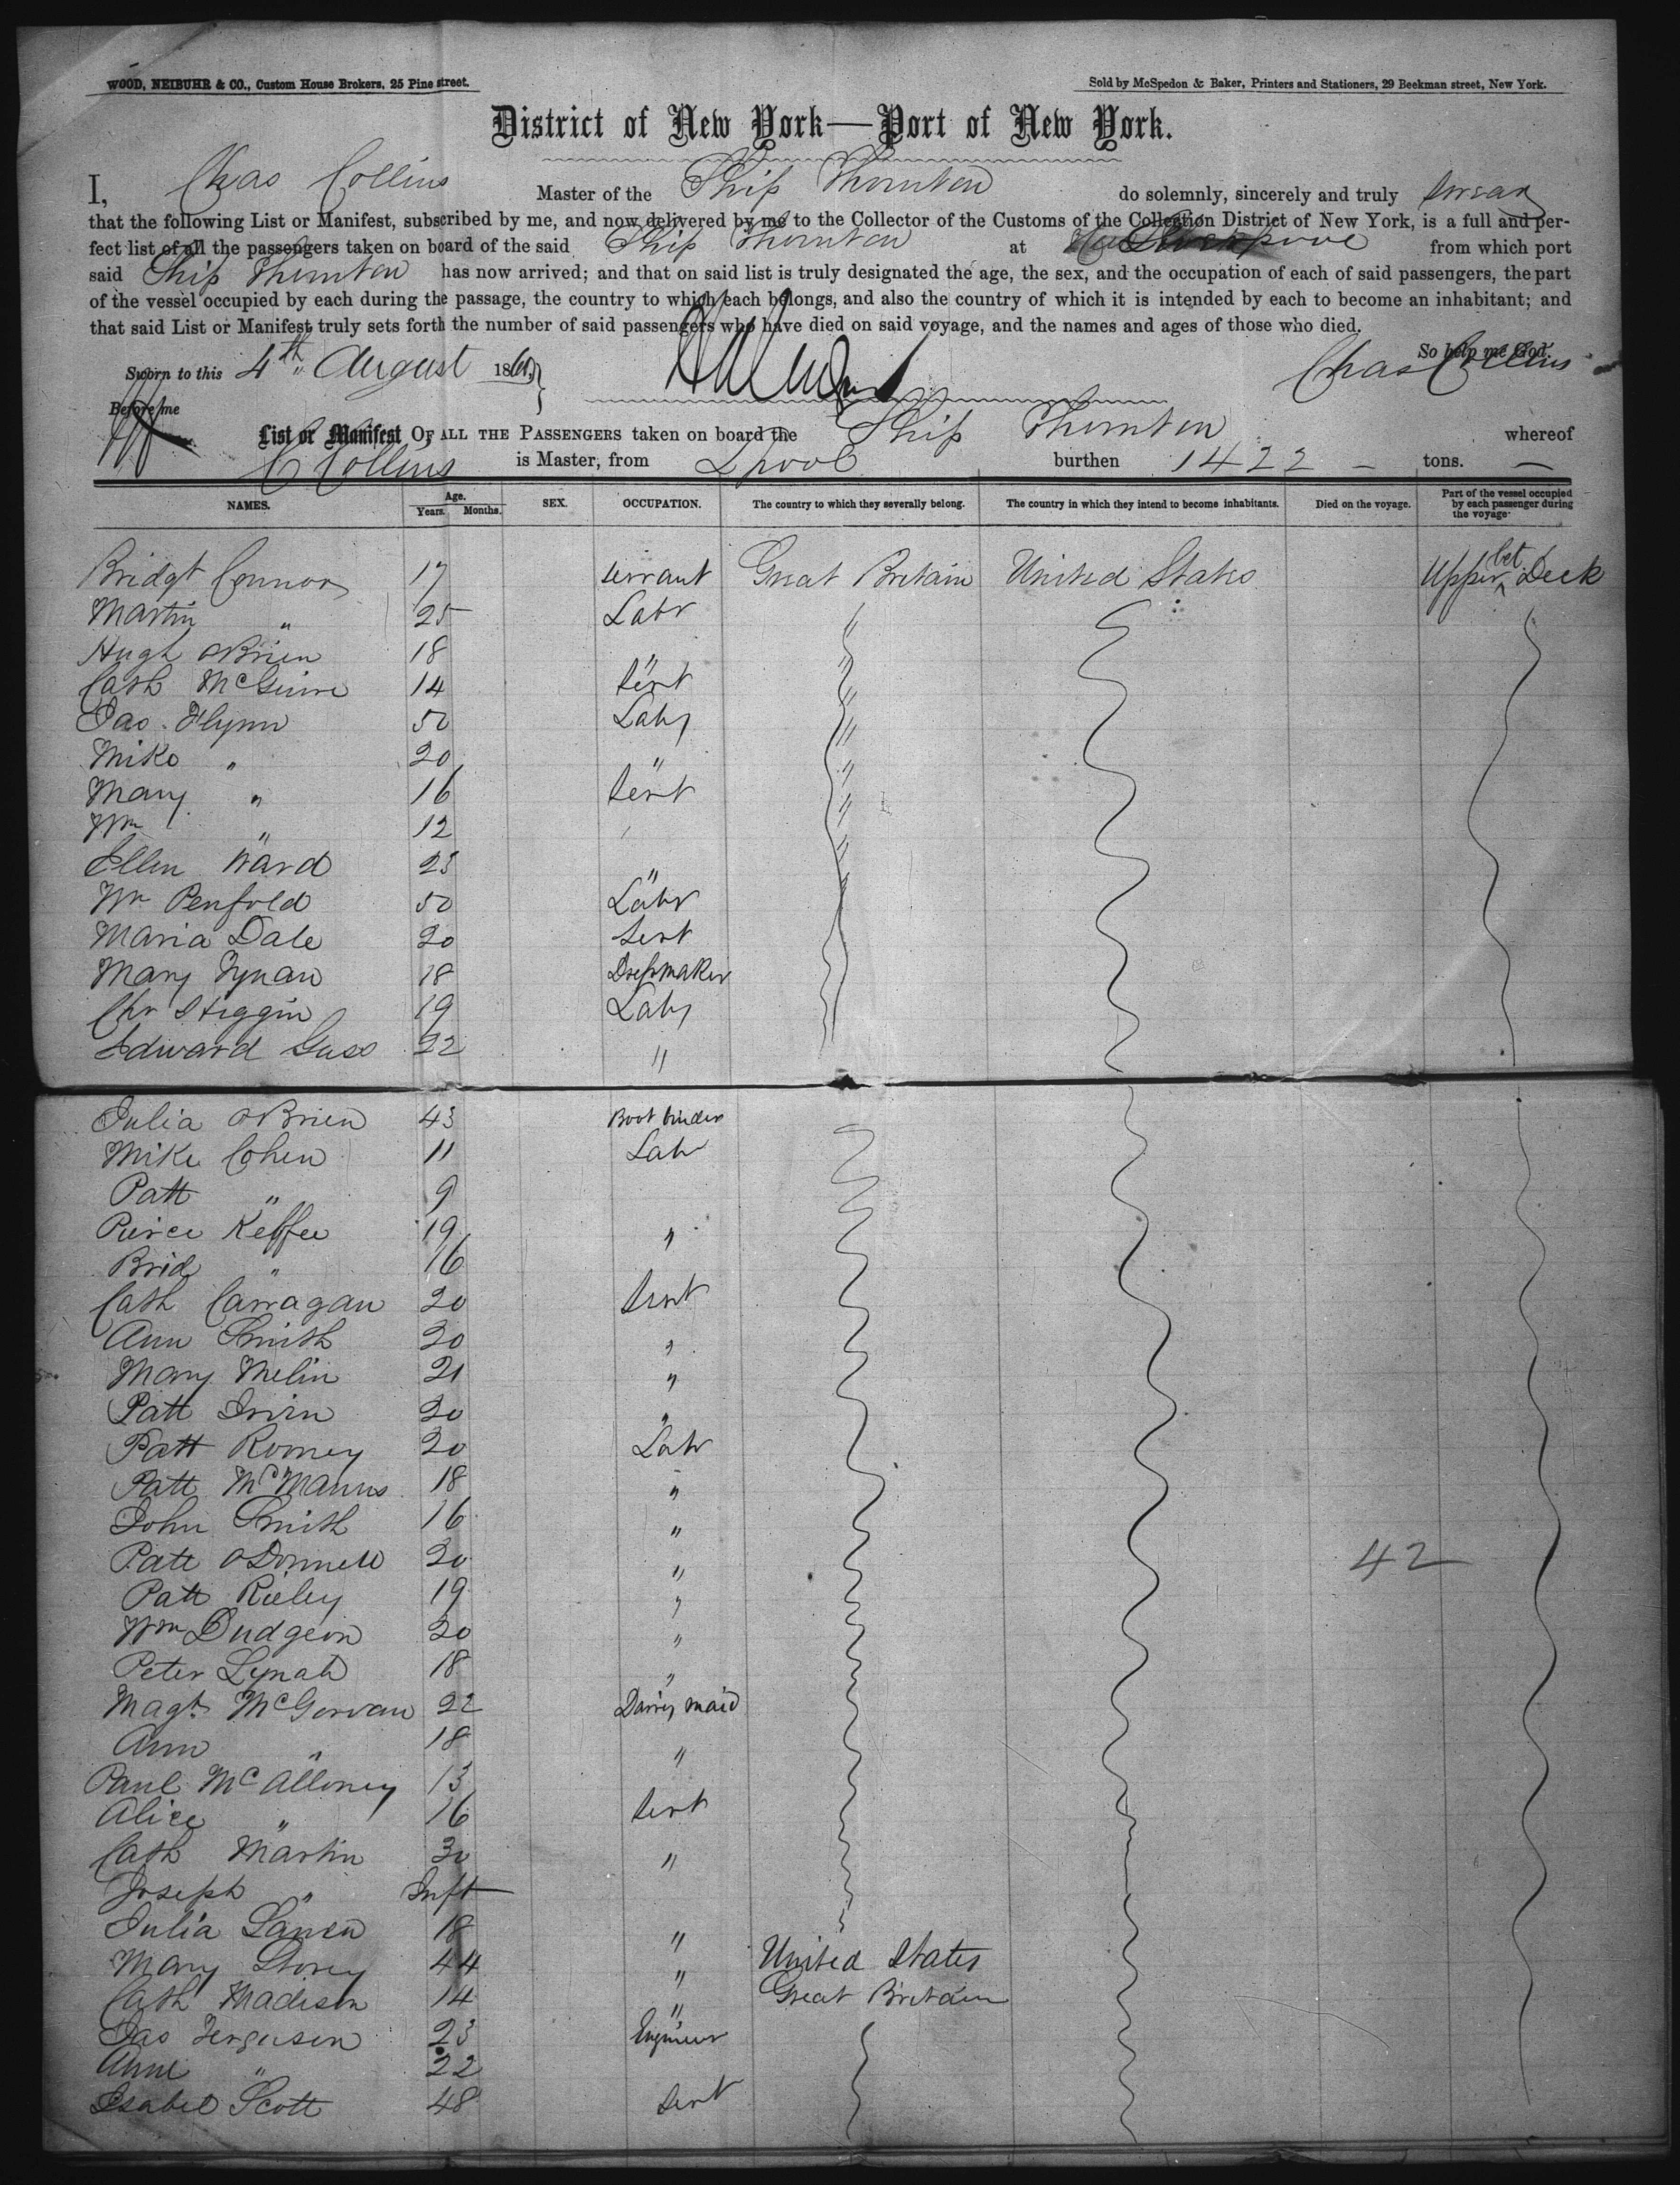 WOOD, NEIBUHR & CO., Custom House Brokers, 25 Pine street.
Sold by McSpedon & Baker, Printers and Stationers, 29 Beekman street, New York.
District of New York—Port of New York.
I, Chas Collins Master of the Ship Thornton do solemnly, sincerely and truly swear
that the following List or Manifest, subscribed by me, and now delivered by me to the Collector of the Customs of the Collection District of New York, is a full and per-
fect list of all the passengers taken on board of the said Ship Thornton at from which port
said Ship Thornton has now arrived; and that on said list is truly designated the age, the sex, and the occupation of each of said passengers, the part
of the vessel occupied by each during the passage, the country to which each belongs, and also the country of which it is intended by each to become an inhabitant; and
that said List or Manifest truly sets forth the number of said passengers who have died on said voyage, and the names and ages of those who died.
So help me God.
Sworn to this 4th August 186 Chas Collins
Before me
List or Manifest OF ALL THE PASSENGERS taken on board the Ship Thornton whereof
C Collins is Master, from Lpool burthen 1422 – tons. —
NAMES. Age. Years. Months. SEX. OCCUPATION. The country to which they severally belong. The country in which they intend to become inhabitants. Died on the voyage. Part of the vessel occupied by each passenger during the voyage
Bridgt Connor 17 servant Great Britain United States Upper bet Deck
Martin " 25 Labr "
Hugh OBrien 18 " "
Cath McGuire 14 Servt "
Jas. Flynn 50 Labr "
Mike " 20 " "
Mary " 16 Servt "
Wm " 12 "
Ellen Ward 23 " "
Wm Penfold 50 Labr
Maria Dale 20 Servt
Mary Tynan 18 Dressmaker
Chr Higgin 19 Labr
Edward Guss 22 "
Julia OBrien 43 Boot binder
Mike Cohen 11 Labr
Patt " 9
Pierce Keffee 19 "
Brid " 16
Cath Carragan 20 Servt
Ann Smith 30 "
Mary Melin 21 "
Patt Irvin 30 "
Patt Rooney 20 Labr
Patt McManus 18 "
John Smith 16 "
Patt ODonnell 20 " 42
Patt Rieley 19 "
Wm Dudgeon 20 "
Peter Lynah 18 "
Magt McGorvan 22 Dairy maid
Ann " 18 "
Paul McAlloney 13
Alice " 16 Servt
Cath Martin 30 "
Joseph " Inft
Julia 18 "
Mary Storey 44 " United States
Cath Madison 14 " Great Britain
Jas Ferguson 23 Engineer
Anne " 22
Isabel Scott 48 Servt